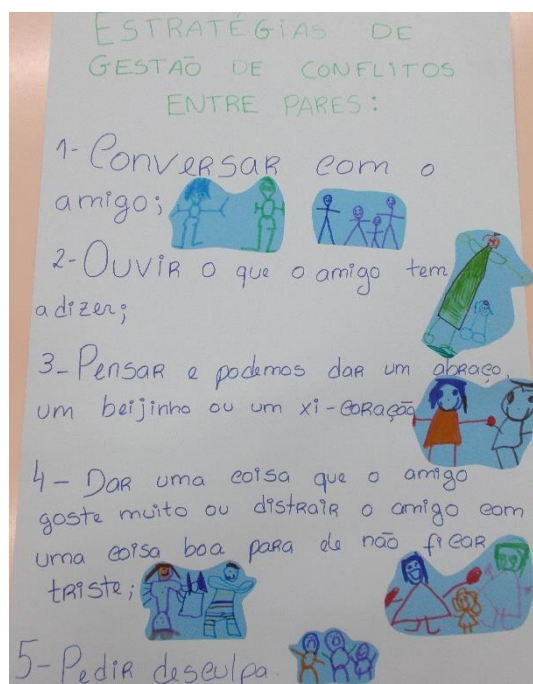 ESTRATÉGIAS DE
GESTÃO DE CONFLITOS
ENTRE PARES:
1- CONVERSAR com o
amigo;
2- OUVIR o que o amigo tem
a dizer;
3- PENSAR e podemos dar um abraço,
um beijinho ou um xi-coração
4- DAR uma coisa que o amigo
goste muito ou distrair o amigo com
uma coisa boa para ele não ficar
triste;
5- Pedir desculpa.